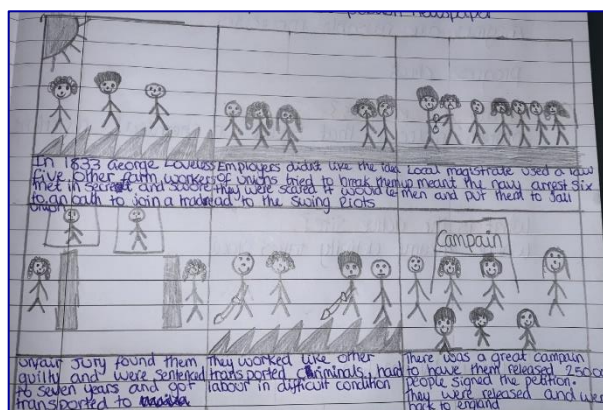 newspaper
In 1833 George Loveless
five other farm workers
met in secret and swore
to an oath to join a trade
union
Employers didnt like the idea
of unions tried to break them up
they were scared it would
lead to the Swing Riots
Local magistrate used a law
meant the navy arrest six
men and put them to Jail
Campain
unfair Jury found them
guilty and were sentenced
to seven years and got
transported to
They worked like other
transported criminals, hard
labour in difficult condition
There was a great campain
to have them released
people signed the petition.
They were released and
back to england